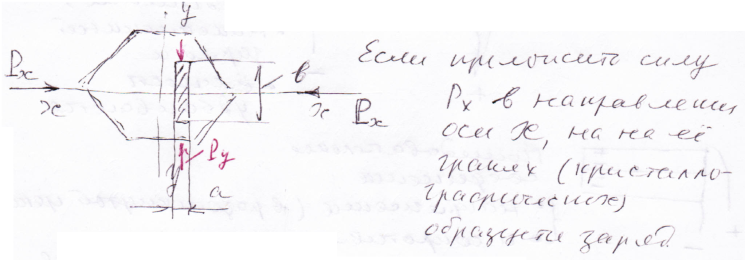 y
Pₓ
x
в
x
Pₓ
Py
a
Если приложить силу
Pₓ в направлении
оси X, на на её
гранях (кристалло-
графических)
образуется заряд